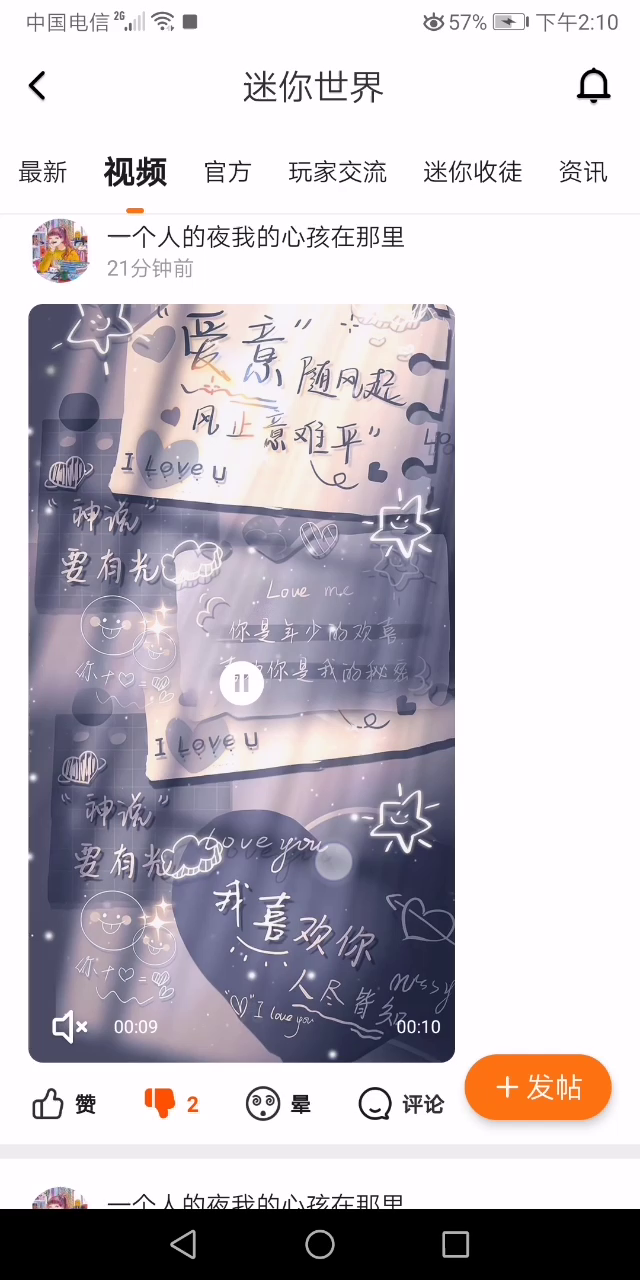 中国电信 2G 57% 下午2:10
迷你世界
最新 视频 官方 玩家交流 迷你收徒 资讯
一个人的夜我的心孩在那里
21分钟前
“爱意”
随风起
风止意难平”
I Love u
“神说”
要有光
Love me
你是年少的欢喜
你是我的秘密
你+♡=
I Love u
“神说”
要有光
Love you
我喜欢你
人尽皆知
"♡"I love you
你+♡=
00:09 00:10
赞 2 晕 评论
+发帖
一个人的夜我的心孩在那里